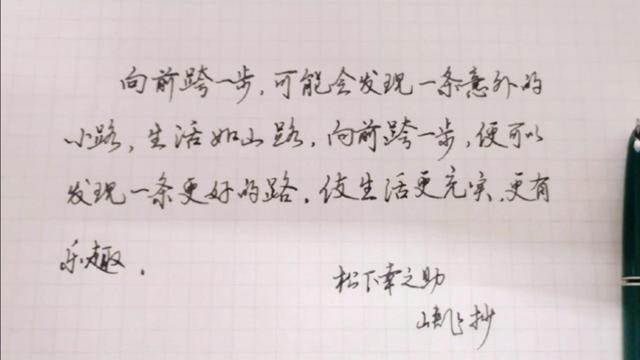 向前跨一步,可能会发现一条意外的
小路,生活如山路,向前跨一步,便可以
发现一条更好的路,使生活更充实,更有
乐趣.
松下幸之助
抄